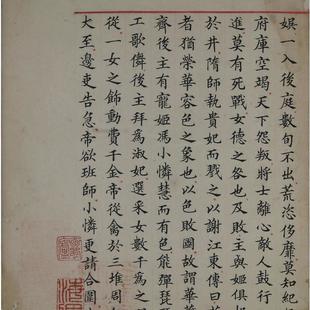 娛一入後庭數旬不出荒恣侈靡莫知紀
府庫空竭天下怨叛將士離心敵人鼓行
進莫有死戰女德之咎也及敗主與姬俱
於井隋師執貴妃而戮之以謝江東傳曰
者猶榮華容色之象也以色敗國故謂華
齊後主有寵姬馮小憐慧而有色能彈琵
工歌儛後主拜為淑妃選采女數千為之
從一女之飾動費千金帝從禽於三堆周
大至邊吏告急帝欲班師小憐更請合圍